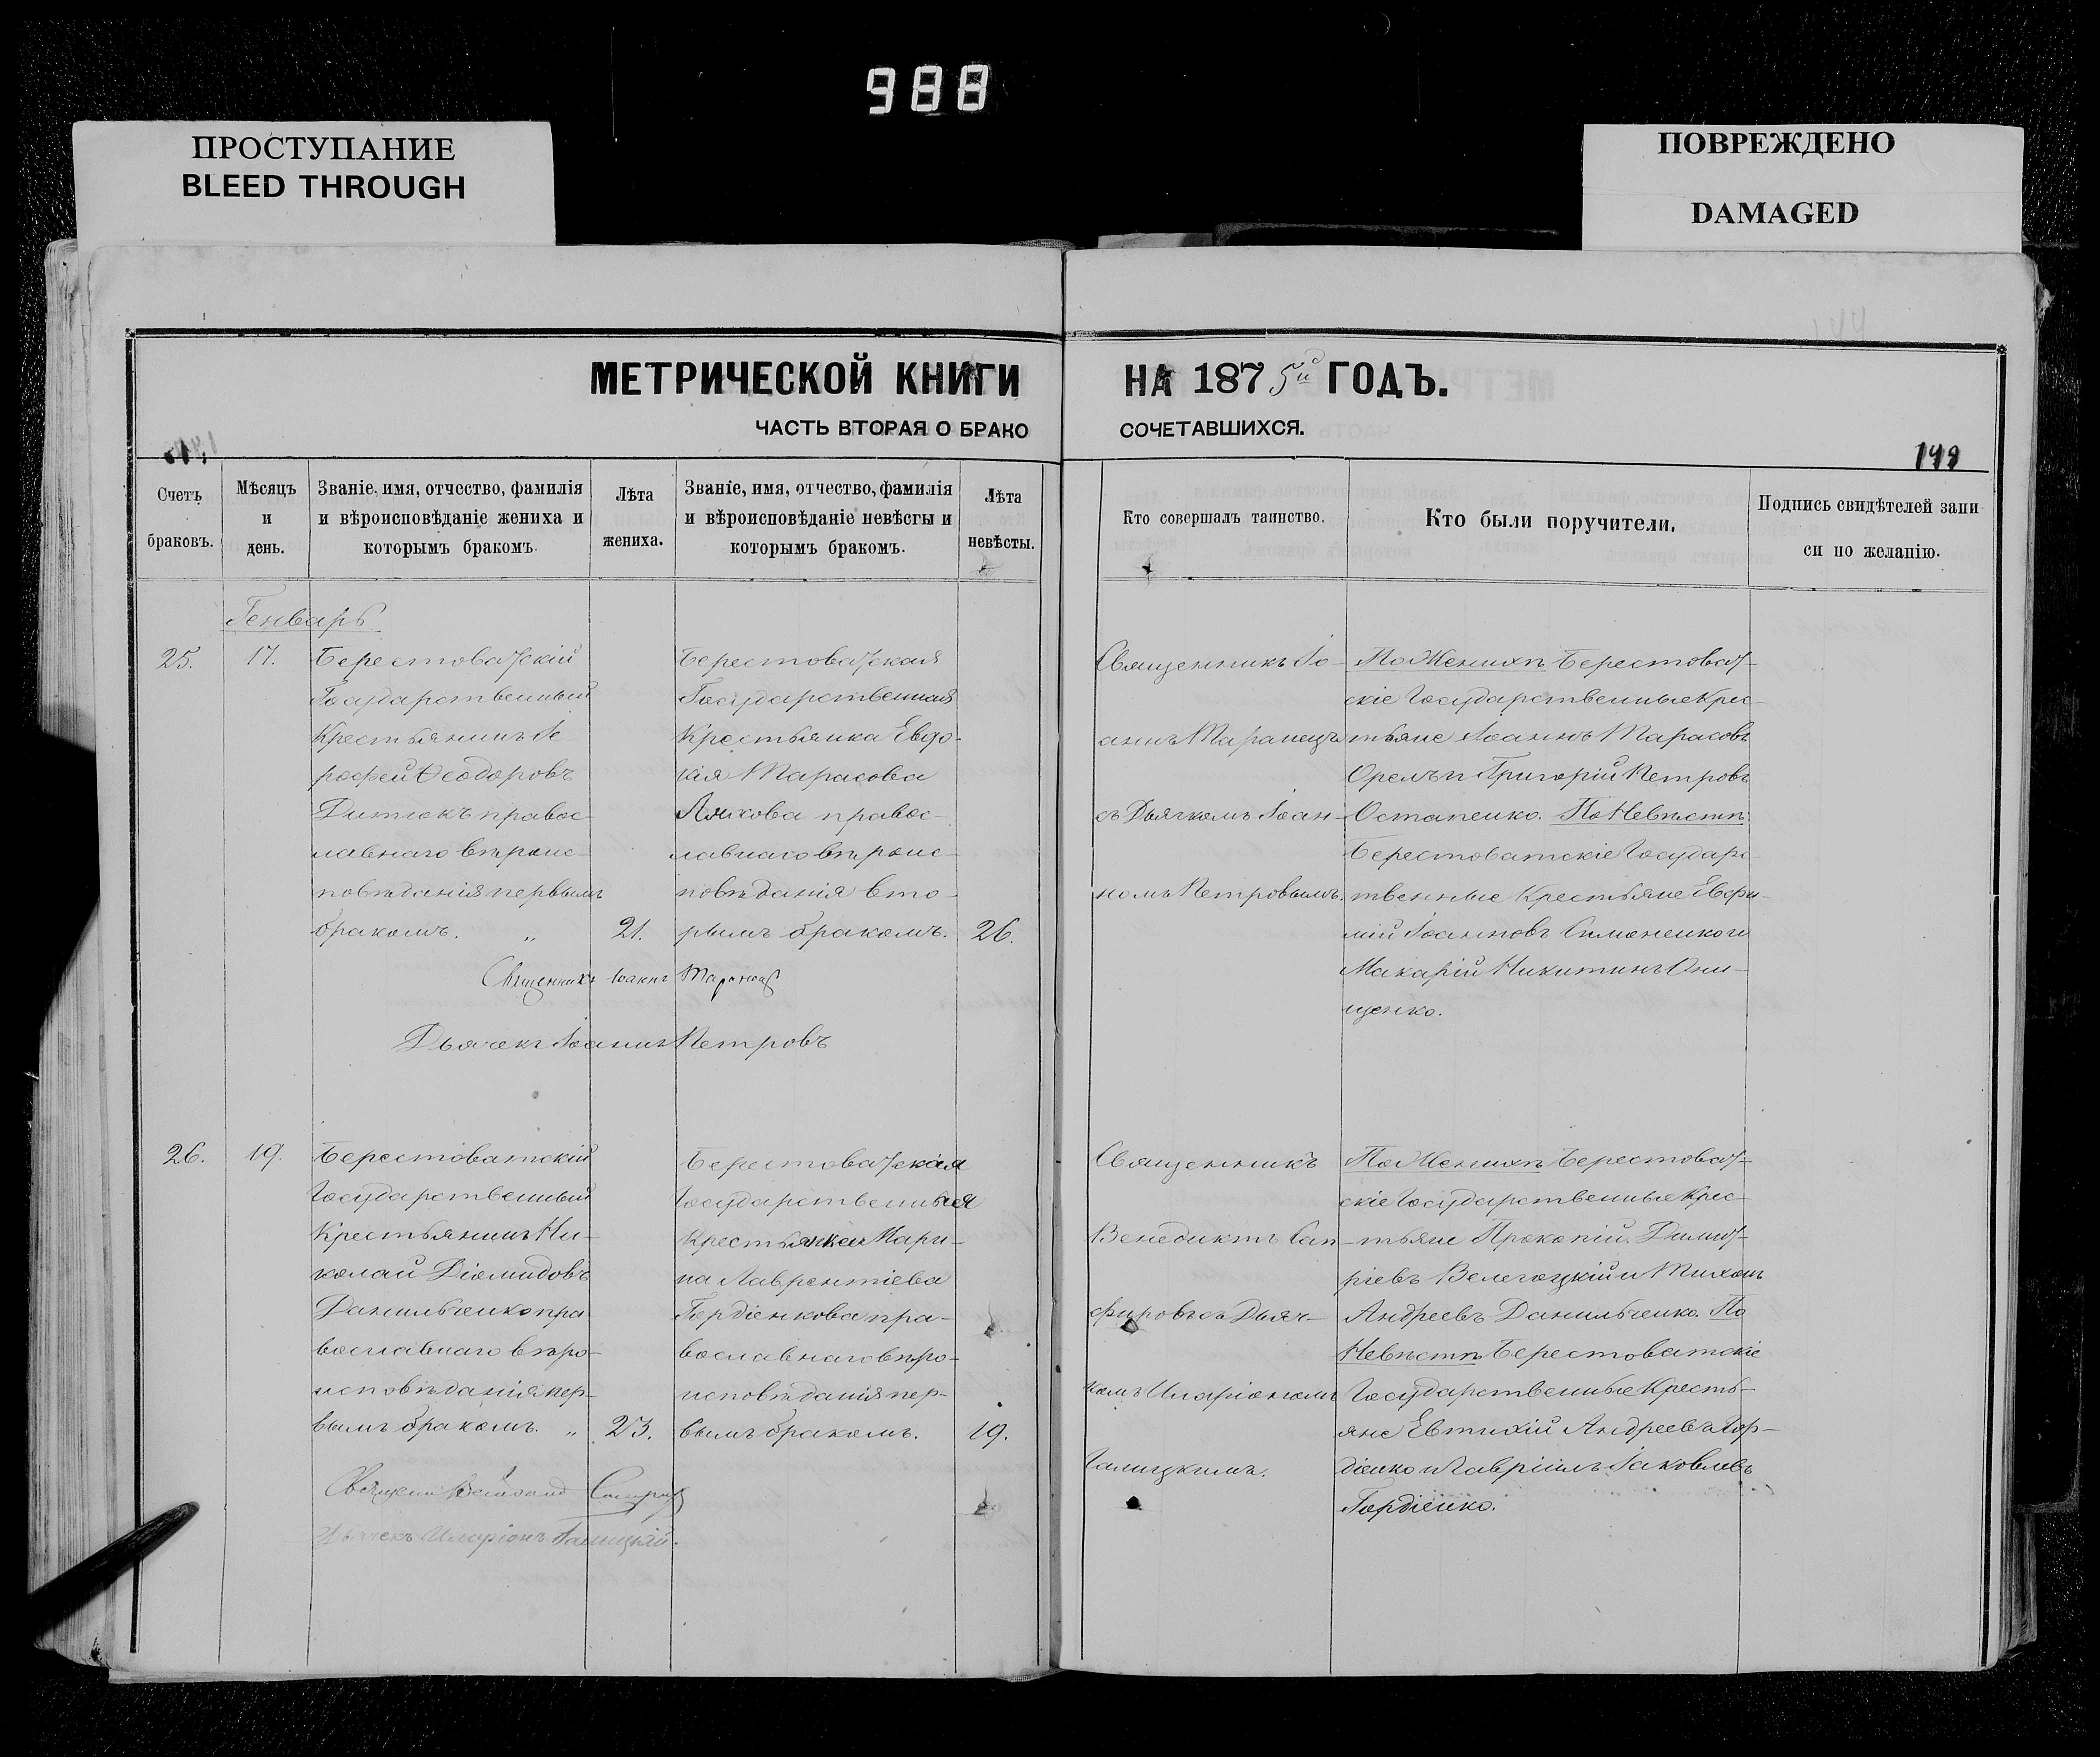 988
ПРОСТУПАНИЕ
BLEED THROUGH
ПОВРЕЖДЕНО
DAMAGED
МЕТРИЧЕСКОЙ КНИГИ
НА 1875й ГОДЪ.
ЧАСТЬ ВТОРАЯ О БРАКО
СОЧЕТАВШИХСЯ.
Счетъ
браковъ.
Мѣсяцъ
и
день.
Званіе, имя, отчество, фамилія
и вѣроисповѣданіе жениха и
которымъ бракомъ.
Лѣта
жениха.
Званіе, имя, отчество, фамилія
и вѣроисповѣданіе невѣсты и
которымъ бракомъ.
Лѣта
невѣсты.
Кто совершалъ таинство.
Кто были поручители.
Подпись свидѣтелей запи-
си по желанію.
Генварь
25.
17.
Берестоватскій
Государственный
Крестьянинъ Іе
рофей Ѳеодоровъ
Дитюкъ правос-
лавнаго вѣроис-
повѣданія первымъ
бракомъ. „
21.
Берестоватская
Государственная
Крестьянка Евдо-
кія Тарасова
правос-
лавнаго вѣроис-
повѣданія вто-
рымъ бракомъ.
26.
Священникъ Іо-
аннъ Таранецъ
съ Дьячкомъ Іоан-
номъ Петровымъ.
По Женихѣ Берестоват-
скіе Государственные Крес-
тьяне Іоаннъ Тарасовъ
Орелъ и Григорій Петровъ
Остапенко. По Невѣстѣ
Берестоватскіе Государс-
твенные Крестьяне Евфи-
мій Іоанновъ Симоненко и
Макарій Никитинъ Они-
щенко.
Священникъ Іоаннъ Таранецъ
Дьячекъ Іоаннъ Петровъ
26.
19.
Берестоватскій
Государственный
Крестьянинъ Ни-
колай Діомидовъ
Данильченко пра
вославнаго вѣро-
исповѣданія пер-
вымъ бракомъ. „
23.
Берестоватская
Государственная
Крестьянка Мари-
на Лаврентіева
Гордіенкова пра-
вославнаго вѣро-
исповѣданія пер-
вымъ бракомъ.
19.
Священникъ
Венедиктъ Сап-
фировъ съ Дьяч-
комъ Иларіономъ
Галицкимъ.
По Женихѣ Берестоват-
скіе Государственные Крес-
тьяне Прокопій Димит-
ріевъ Велегоцкій и Тихонъ
Андреевъ Данильченко. По
Невѣстѣ Берестоватскіе
Государственные Кресть-
яне Евтихій Андреевъ Гор-
діенко и Гавріилъ Іаковлевъ
Гордіенко.
Дьячекъ Иларіонъ Галицкій.